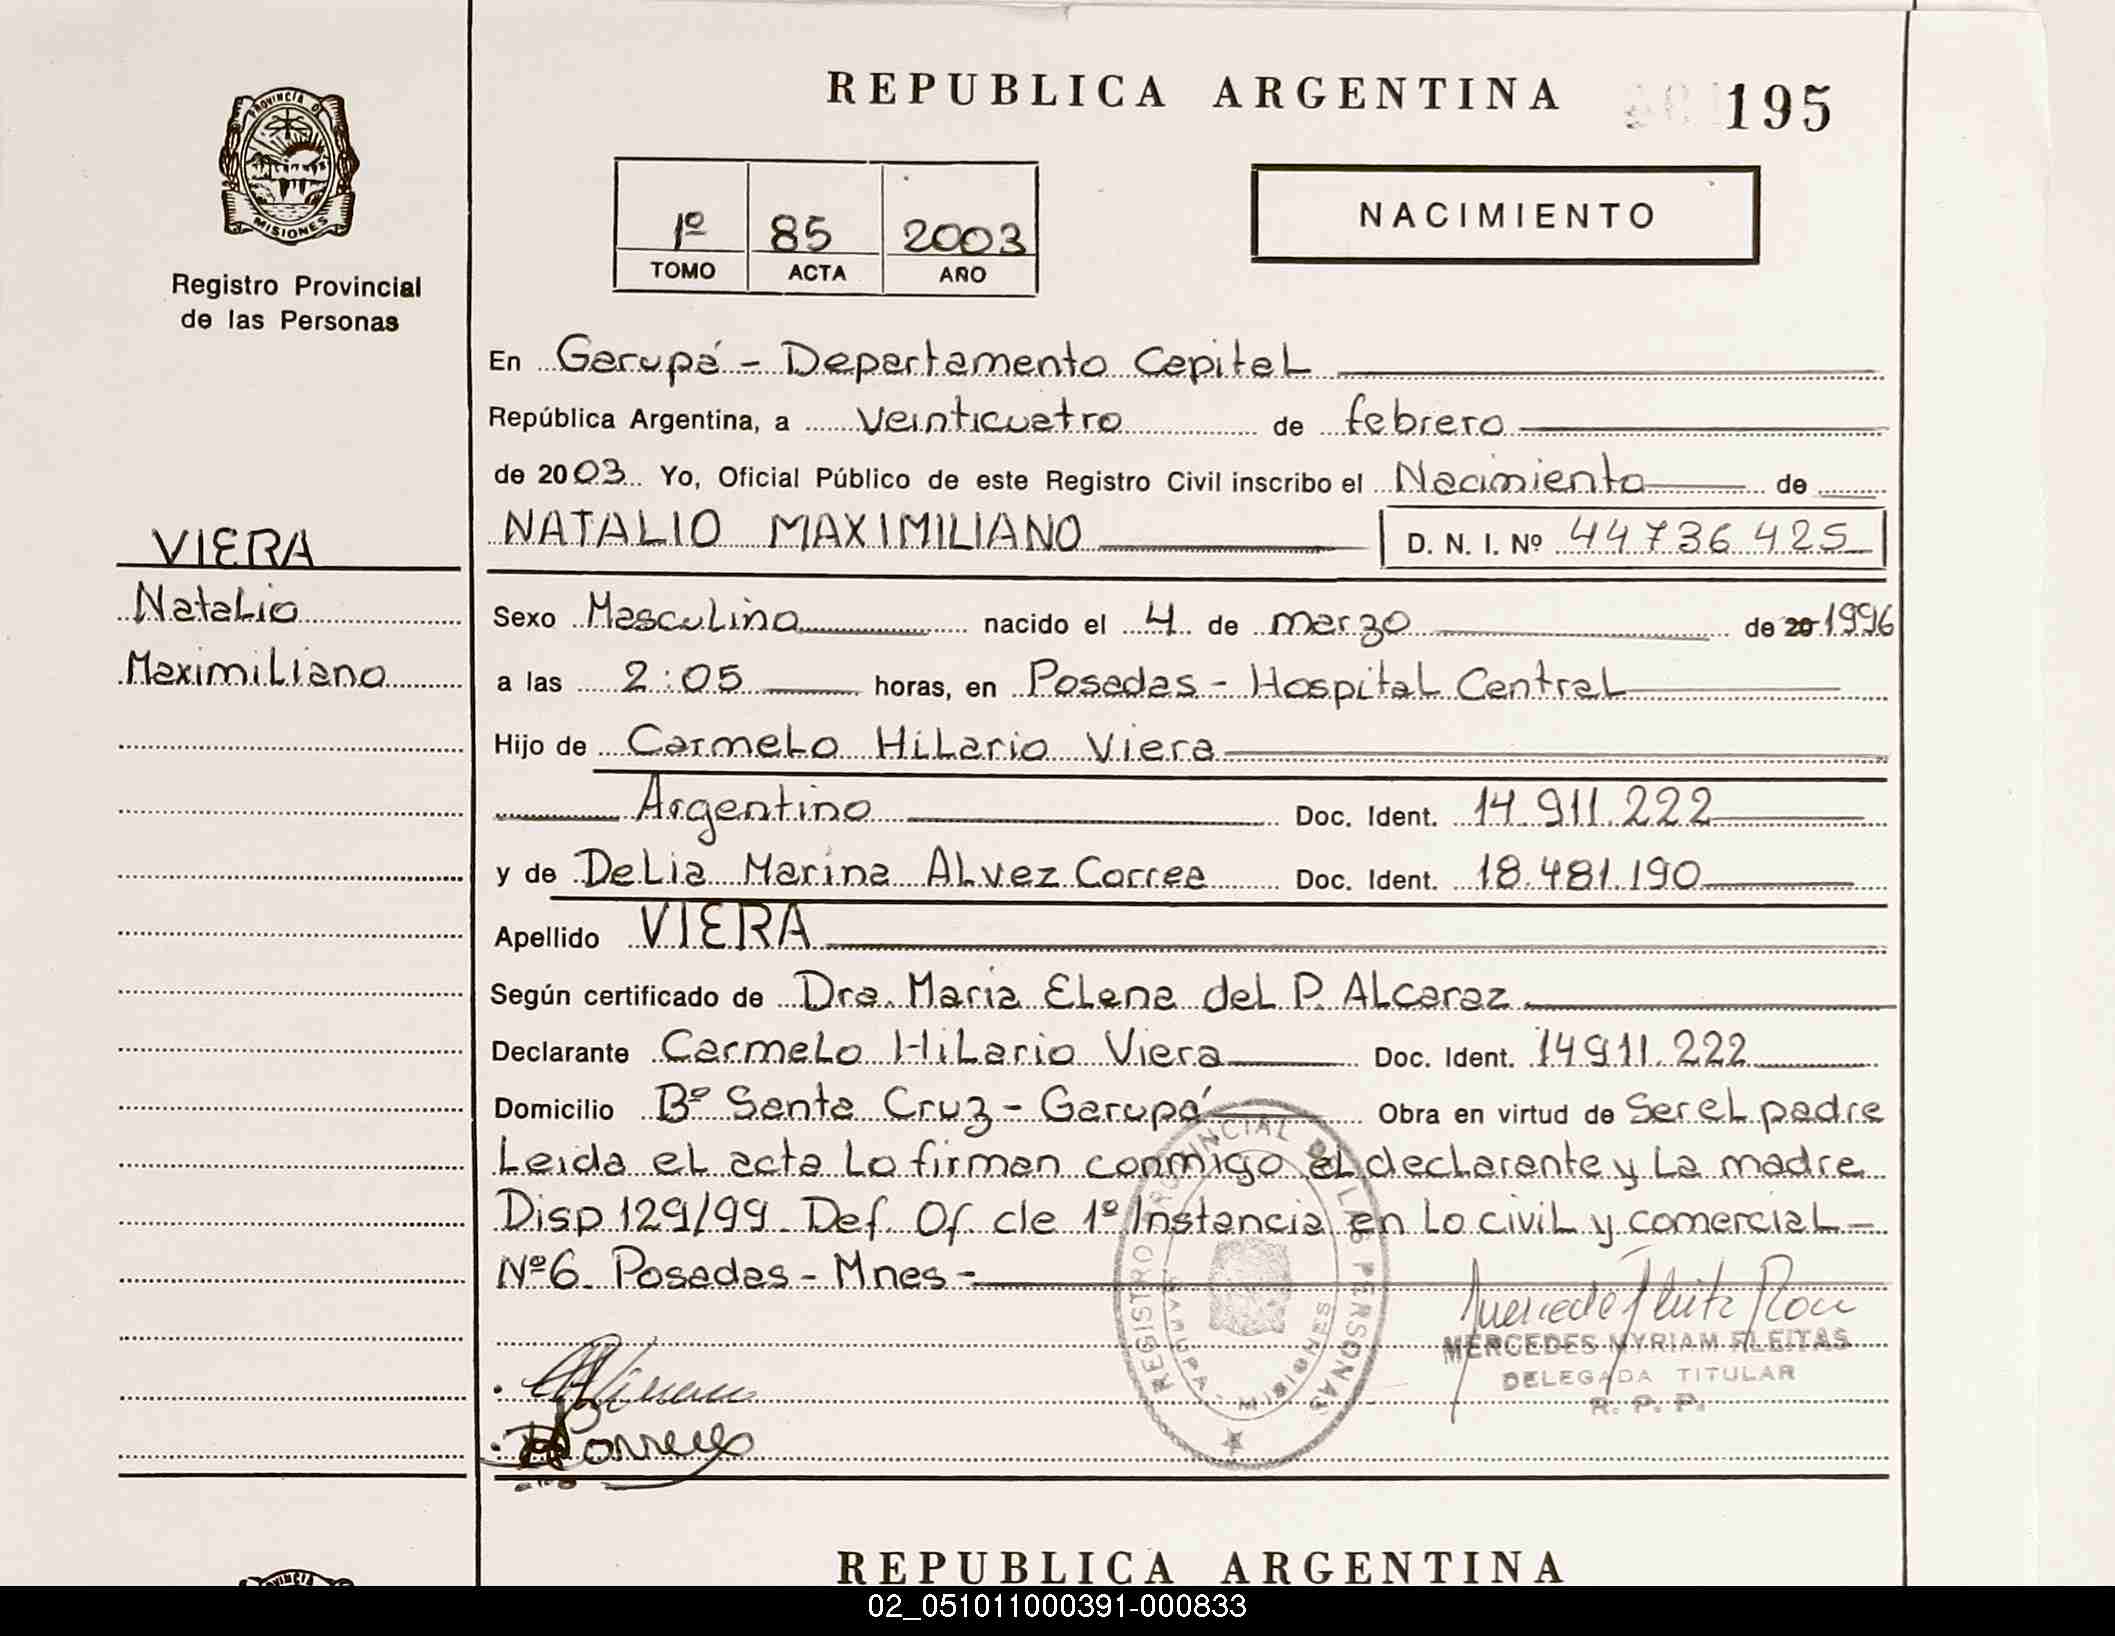 REPUBLICA ARGENTINA
195
PROVINCIA DE
MISIONES
Registro Provincial
de las Personas
1º 85 2003
TOMO ACTA AÑO
NACIMIENTO
En Garupá - Departamento Capital
República Argentina, a veinticuatro de febrero
de 2003. Yo, Oficial Público de este Registro Civil inscribo el Nacimiento de
NATALIO MAXIMILIANO D. N. I. Nº 44736425
VIERA
Natalio
Maximiliano
Sexo Masculino nacido el 4 de marzo de 20 1996
a las 2:05 horas, en Posadas - Hospital Central
Hijo de Carmelo Hilario Viera
Argentino Doc. Ident. 14.911.222
y de Delia Marina Alvez Correa Doc. Ident. 18.481.190
Apellido VIERA
Según certificado de Dra. Maria Elena del P. Alcaraz
Declarante Carmelo Hilario Viera Doc. Ident. 14911.222
Domicilio Bº Santa Cruz - Garupá Obra en virtud de Ser el padre
Leida el acta lo firman conmigo el declarante y la madre
Disp 129/99 Def. Of. de 1º Instancia en lo civil y comercial -
Nº6 Posadas - Mnes -
REGISTRO PROVINCIAL DE LAS PERSONAS
GARUPA - MISIONES
MERCEDES MYRIAM FLEITAS
DELEGADA TITULAR
R. P. P.
REPUBLICA ARGENTINA
02_051011000391-000833